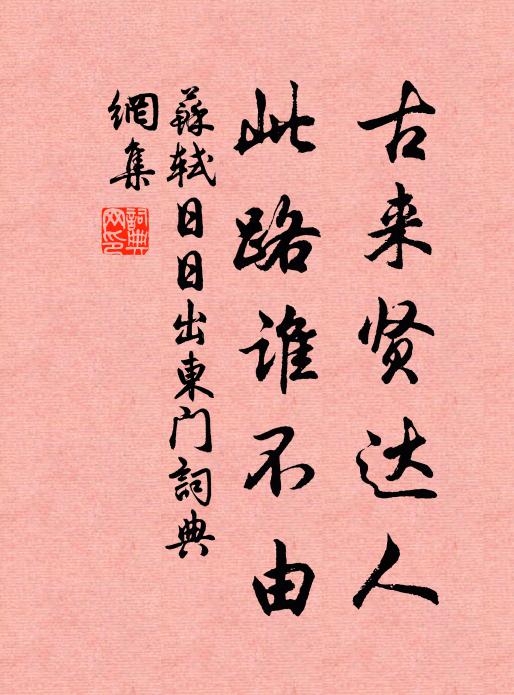 古来贤达人
此路谁不由
蘇轼日日出東门詞典
網集
詞典
网印